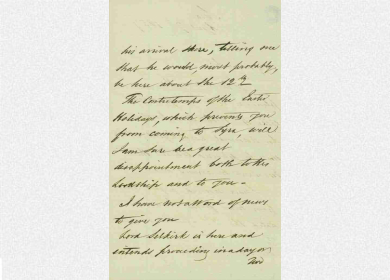 his arrival there, telling me
that he would, most probably,
be here about the 12th
The Contretemps of the Easter
Holidays, which prevents you
from coming to Syra, will
I am sure be a great
disappointment both to his
Lordship and to you -
I have not a word of news
to give you
Lord Selkirk is here and
intends proceeding in a day or